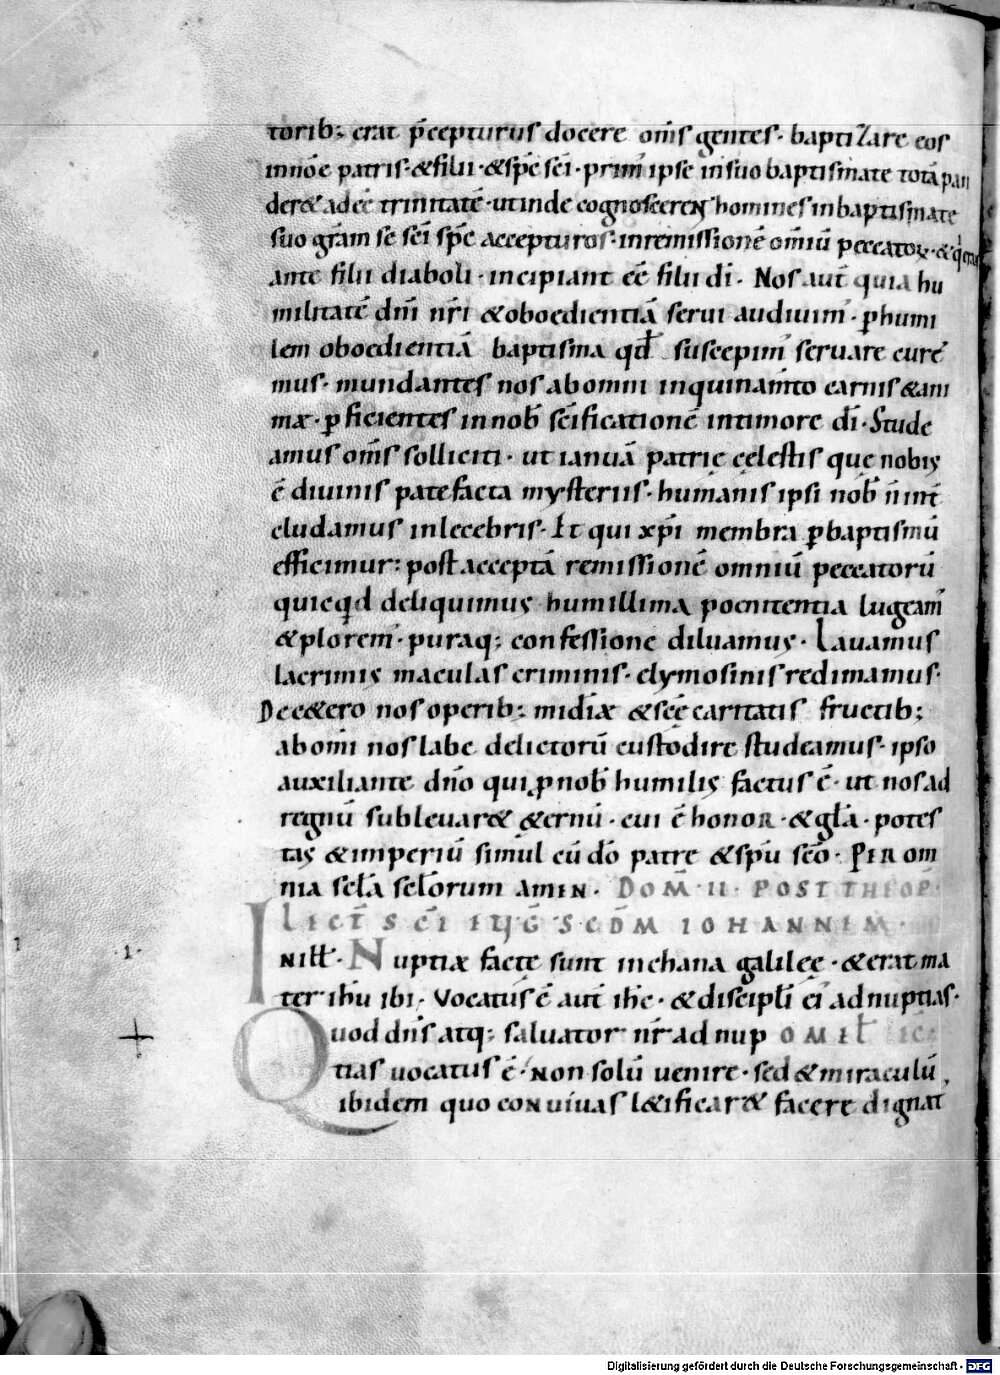 torib; erat p̄cepturus docere om̄s gentes· baptizare eos
in nōe patris· &filii· &sp̄c sc̄i· primū ipse in suo baptismate totā pan
der& adeē trinitatē· ut inde cognosceren̄ homines in baptismate
suo gr̄am se sc̄i sp̄c accepturos· in remissionē om̄iū peccatoꝝ·
ante filii diaboli· incipiant eē filii di· Nos aut̄ quia hu
militatē dn̄i nr̄i &oboedientiā serui audiuim̄· ꝑ humi
lem oboedientiā baptisma qd̄ suscepim̄ seruare cure
mus· mundantes nos ab omni inquinam̄to carnis &ani
mæ· ꝑficientes in nob̄ sc̄ificationē in timore dī· Stude
amus om̄s solliciti· ut ianuā patrię cęlestis quę nobis
ē diuinis patefacta mysteriis· humanis ipsi nob̄ n̄ int̄
cludamus inlecebris· Et qui xp̄i membra ꝑ baptismū
efficimur: post acceptā remissionē omniū peccatorū
quicqd deliquimus humillima poenitentia lugeam̄
&plorem̄· puraq; confessione diluamus· Lauamus
lacrimis maculas criminis· elymosinis redimamus·
De c&ero nos operib; mīdiæ &scē caritatis fructib;
ab omī nos labe delictorū custodire studeamus· ipso
auxiliante dn̄o qui ꝓ nob̄ humilis factus ē· ut nos ad
regnū subleuar& &ernū· cui ē honor· &gl̄a· potes
tas &imperiū simul cū dō patre &sp̄u sc̄o· Per om
nia scl̄a scl̄orum amen· DOM̄· II· POST THEOP̄·
LECT̄ SC̄I EVḠ SCDM IOHANNEM·
In ill̄· Nuptiæ factę sunt in chana galileę· &erat ma
ter ih̄u ibi· Vocatus ē aut̄ ih̄c· &discipl̄i ei ad nuptias·
Quod dn̄s atq; saluator nr̄ ad nup OMEL̄
tias uocatus ē· non solū uenire· sed &miraculū
ibidem quo conuiuas l&ificar& facere dignat̄
1 ·1·
Digitalisierung gefördert durch die Deutsche Forschungsgemeinschaft - DFG